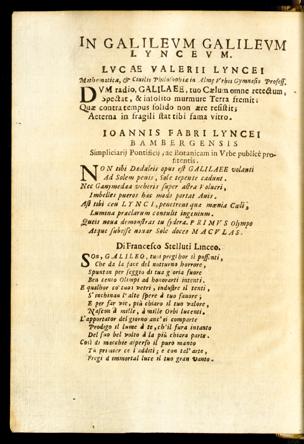 IN GALILEVM GALILEVM
LYNCEVM.
LVCAE VALERII LYNCEI
Mathematicæ, & Ciuilis Philosophiæ in Almo Vrbis Gymnasio Profess.
DVM radio, GALILAEE, tuo Cælum omne retectum,
Spectat, & insolito murmure Terra fremit;
Quæ contra tempus solido non ære resistit;
Aeterna in fragili stat tibi fama vitro.
IOANNIS FABRI LYNCEI
BAMBERGENSIS
Simpliciarij Pontificij, ac Botanicam in Vrbe publicè profitentis.
NON tibi Dædaleis opus est GALILAEE volanti
Ad Solem penis, Sole tepente cadunt.
Nec Ganymedæa veheris super astra Volucri,
Imbelles pueros hæc modo portat Auis.
Ast tibi ceu LYNCI, penetrent quæ mœnia Cæli,
Lumina præclarum contulit ingenium.
Queis noua demonstras tu sydera. PRIMVS Olympo
Atque subesse nouas Sole doces MACVLAS.
Di Francesco Stelluti Linceo.
SOn, GALILEO, tua pregi hor sì possenti,
Che da la face del notturno horrore,
Spuntan per seggio di tua gloria fuore
Ben cento Olimpi ad honorarti intenti.
E qualhor co' tuoi vetri, industre il tenti,
S'inchinan l'alte spere à tuo fauore;
E per far vie, più chiaro il tuo valore,
Nascon à mille, à mille Orbi lucenti.
L'apportator del giorno anc'ei comparte
Prodigo il lume à te, ch'il fura intanto
Del suo bel volto à la più chiara parte.
Così di macchie asperso il puro manto
Tu primier ce l'additi; e con tal'arte,
Fregi d'immortal luce il tuo gran vanto.